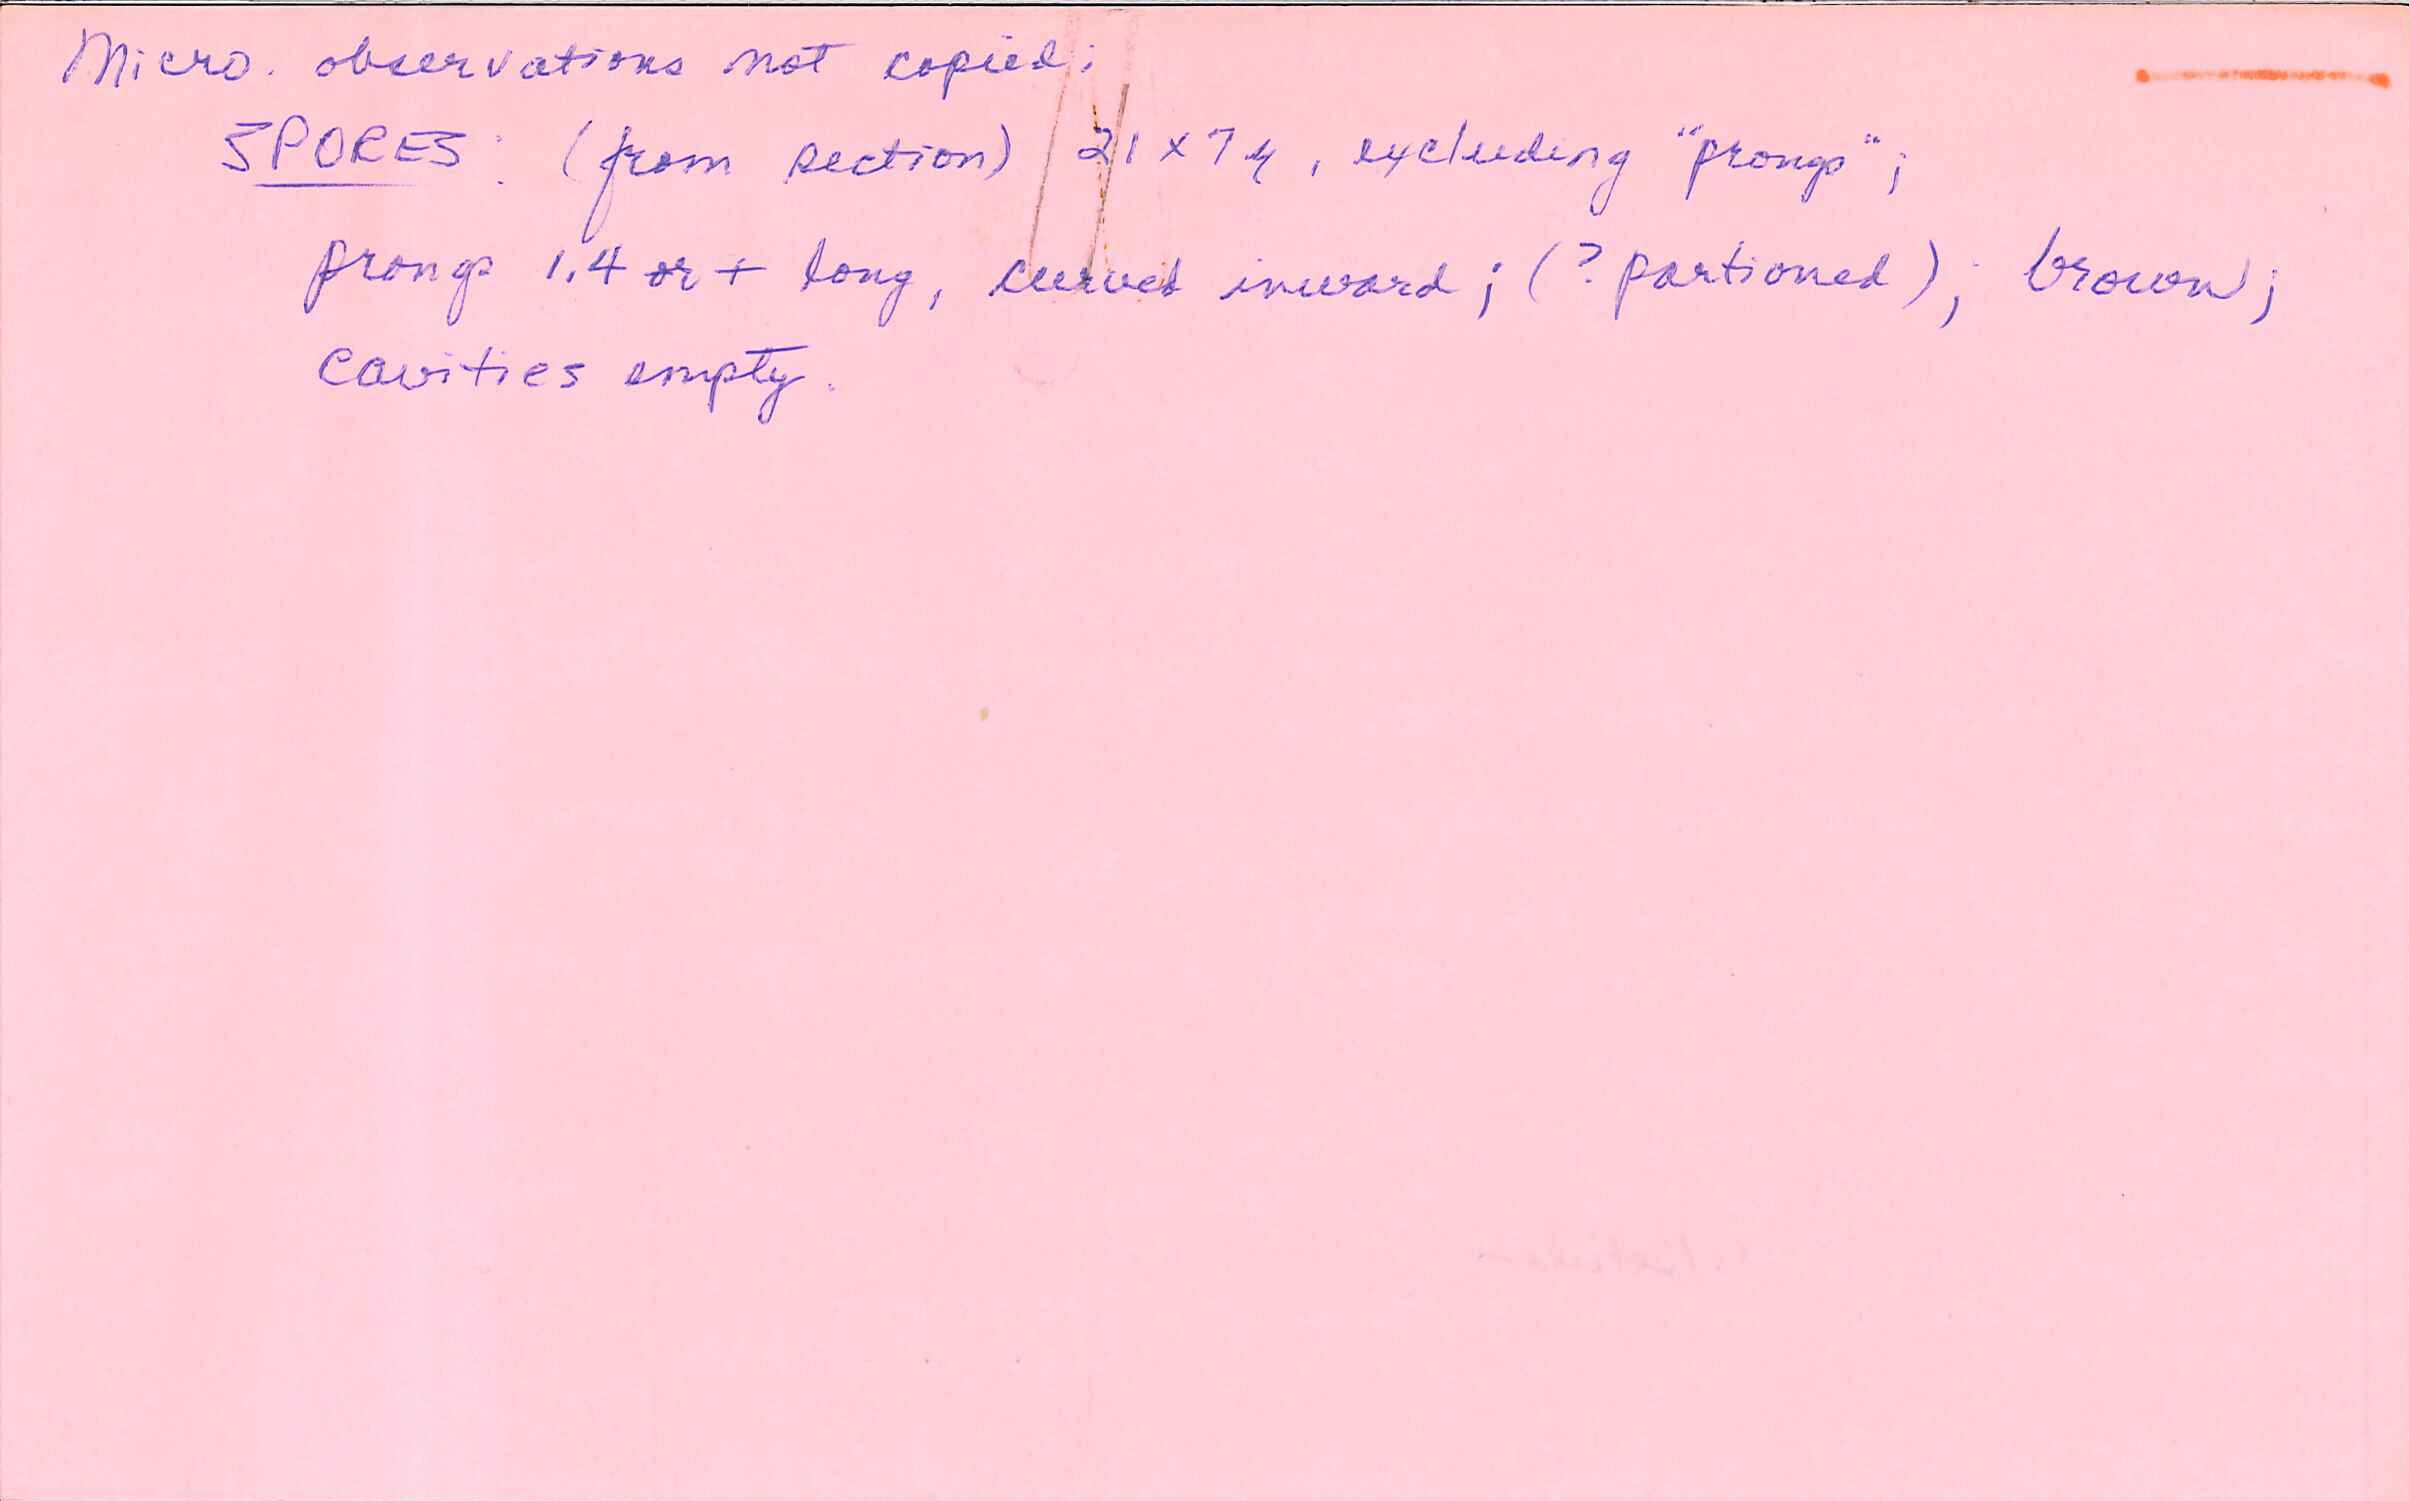 Micro. observations not copied:
SPORES: (from section) 21 x 7 μ, excluding "prongs";
prongs 1.4 or + long, curved inward; (? partioned); brown;
cavities empty.